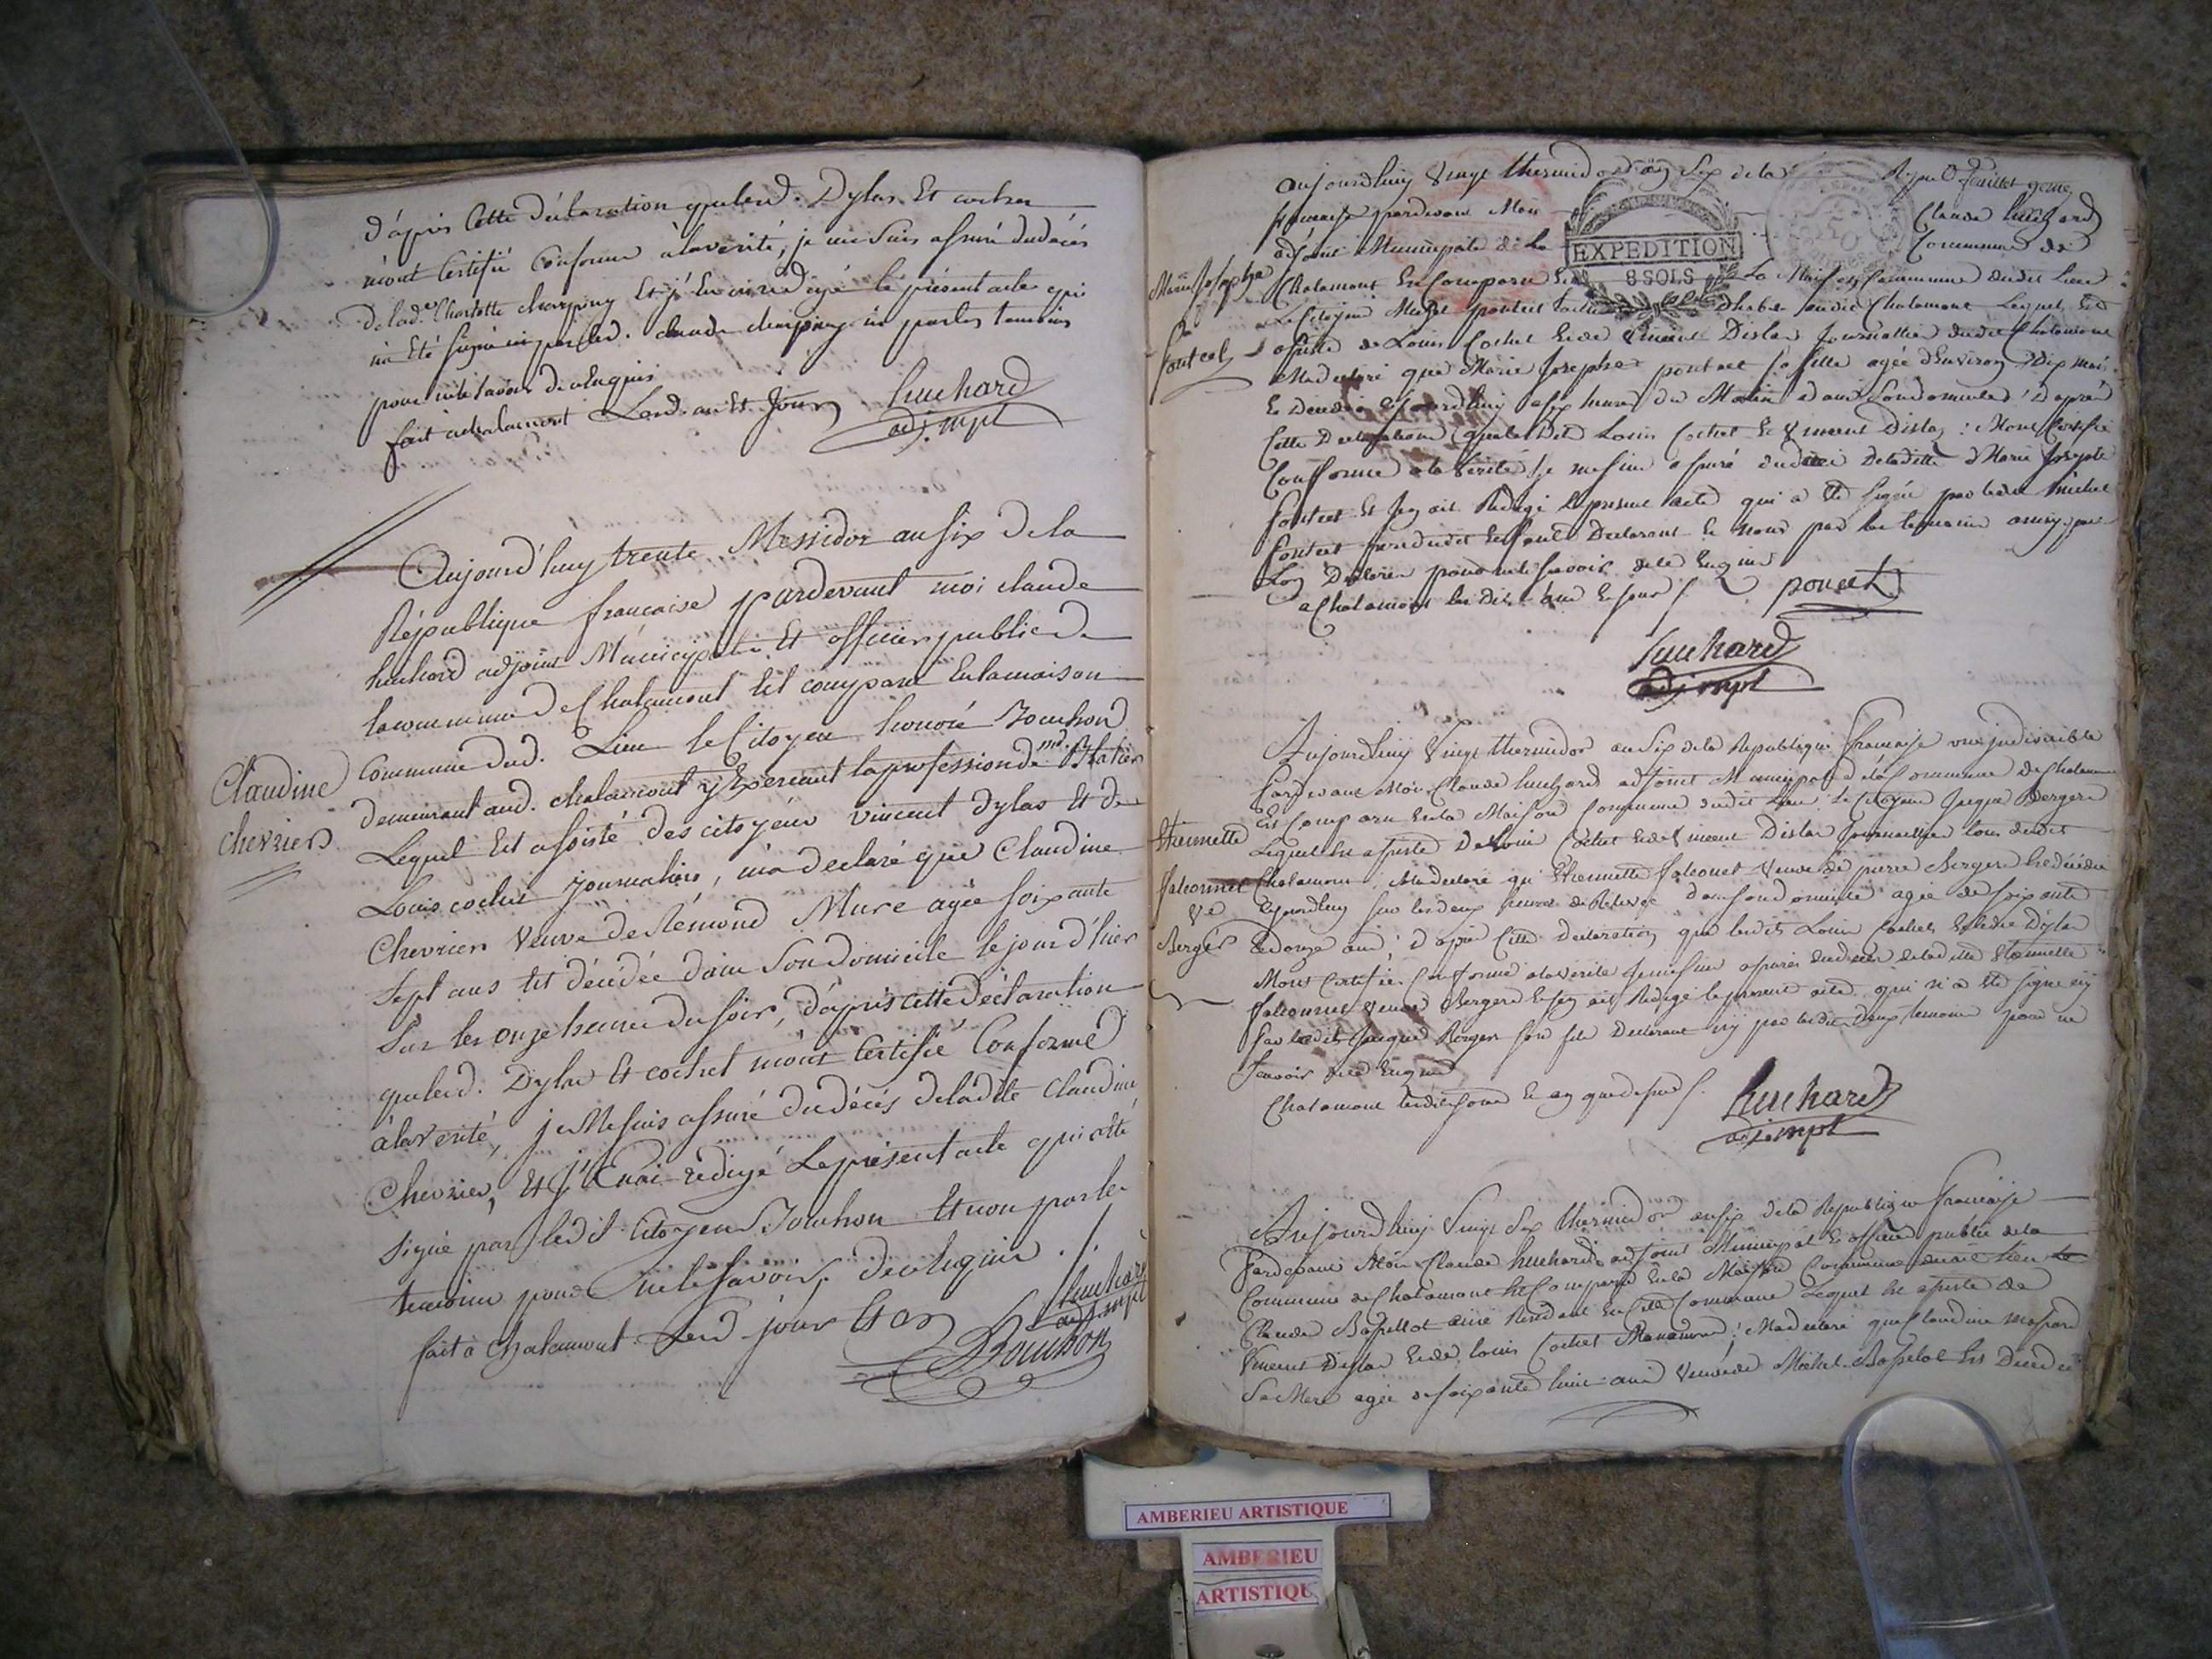 d'après Cette déclaration que led. Dylas Et cochet
m'ont Certifié Conforme à la vérité, je me suis assuré du décés
de lad.e Charlotte charpiny Et j'en ai rédigé le présent acte qui
n'a Eté signé ni par led. claude charpiny ni par les temoins
pour ne le savoir de ce Enquis
fait a chalamont Led. an Et Jour
huchard
adj. mpl
Aujourd'huy trente Messidor an six de la
République française pardevant moi claude
huchard adjoint Municipale Et officier public de
la commune de Chalamont Est comparu En la maison
Commune dud. Lieu le Citoyen honoré Bouchon
demeurant aud. chalamont y Exerceant la profession de
Lequel Est assisté des citoyens vincent dylas Et de
Louis cochet journaliers, m'a declaré que Claudine
Chevrier Veuve de Rémond Mure agée soixante
sept ans Est décédée dans Son domicile le jour d'hier
Sur les onze heures du soir, d'après cette déclaration
que led. Dylas Et cochet m'ont Certifié Conforme
à la verité, je Me suis assuré du décés de ladite Claudine
Chevrier, Et j'En ai rédigé Le présent acte qui a été
signé par ledit Citoyen Bouchon Et non par les
temoins pour ne le savoir, de ce Enquis ./.
fait à chalamont Led jour Et an
huchard
adj. mpl
Bouchon
Claudine
chevrier
aujourdhuy Vingt thermidor an Six de la Republique
francaise pardevant Moi Claude huchard
adjoint Municipale de la Commune de
EXPEDITION
8 SOLS
Chalamont Est Comparu En La Maison Commune dudit Lieu
Le Citoyen Michel pontet audit Chalamont Lequel Est
assisté de Louis Cochet Et de Vincent Dislas Journallier dudit Chalamont
Ma declaré que Marie Josephe pontet sa fille agée d'Environ Dix mois
Est Decedée aujourdhuy a six heures du Matin dans Son domicile D'aprés
Cette Declaration que lesdits Louis Cochet Et Vincent Dislas Mont Certifié
Conforme a la Vérité Je me suis assuré du décés de ladite Marie Josephe
pontet Et J'en ai Redigé le present acte qui a été signé par ledit Michel
pontet Declarant Et non par les temoins
pour ne le savoir de ce Enquis
a Chalamont les dits an Et jour
pontet
huchard
adj mpl
Marie Josephe
pontet
Aujourdhuy Vingt thermidor an Six de la Republique francaise une indivisible
Pardevant Moi Claude huchard adjoint Municipal de la Commune de Chalamont
Est Comparu En la Maison Commune dudit Lieu Le Citoyen Jacque Berger
Lequel Est assisté de Louis Cochet Et de Vincent Dislas Journallier tous dudit
Chalamont, Ma declaré qu'Etiennette falconnet Veuve de pierre Berger Est decedée
aujourdhuy sur les deux heures dans son domicile agée de soixante
et douze ans, D'aprés Cette Declaration que lesdits Louis Cochet Et ledit Dylas
Mont Certifié Conforme a la Vérité Je me suis assuré du décés de ladite Etiennette
falconnet Veuve Berger Et J'en ai Redigé le present acte qui n'a été signé ny
par ledit Jacque Berger son fils Declarant ny par lesdits Deux temoins pour ne
savoir de ce Enquis
Chalamont lesdits jour Et an que dessus
huchard
adj. mpl
Etiennette
falconnet
Ve
Berger
Aujourdhuy Vingt Six thermidor an six de la Republique francaise
Pardevant Moi Claude huchard adjoint Municipal Et officier public de la
Commune de Chalamont Est Comparu En la Maison Commune dudit Lieu
Claude Bassellot Resident En Cette Commune Lequel Est assisté de
Vincent Dislas Et de Louis Cochet Ma declaré que Claudine
Sa Mere agée de soixante huit ans Veuve de Michel Bosselot Est Decedée
AMBERIEU ARTISTIQUE
AMBERIEU
ARTISTIQU